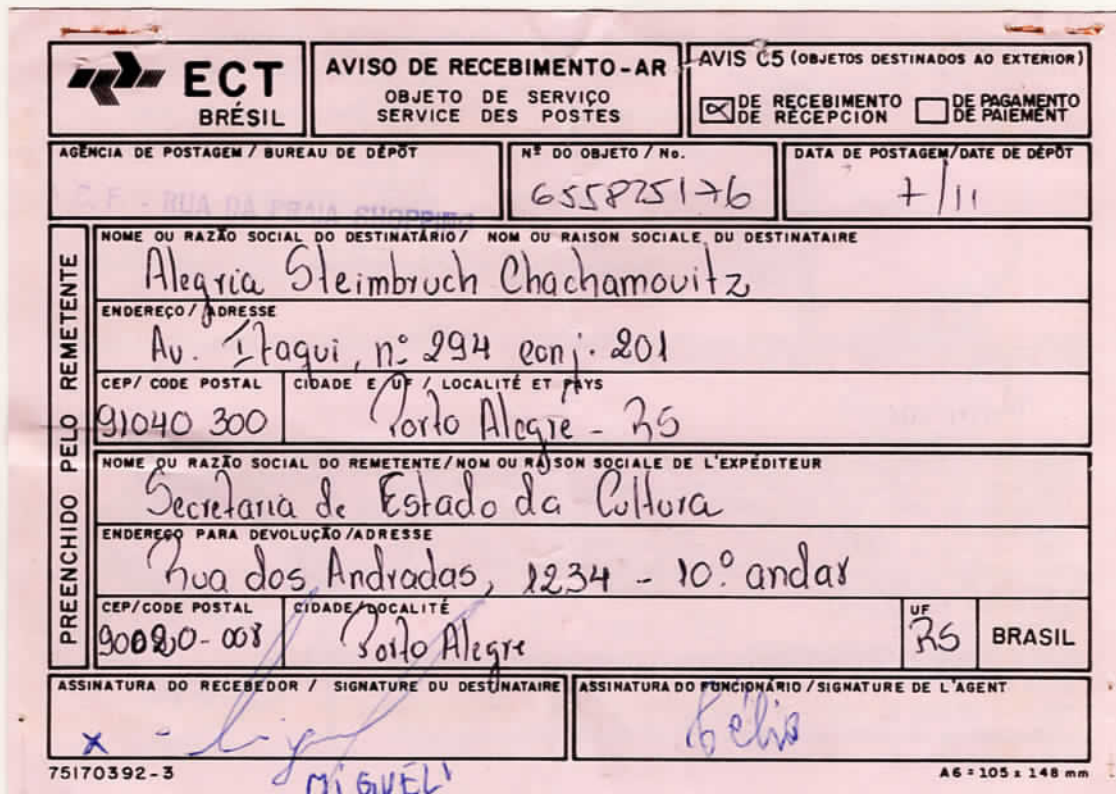 ECT
BRÉSIL
AVISO DE RECEBIMENTO-AR
OBJETO DE SERVIÇO
SERVICE DES POSTES
AVIS C5 (OBJETOS DESTINADOS AO EXTERIOR)
DE RECEBIMENTO
DE RÉCEPCION
DE PAGAMENTO
DE PAIEMENT
AGÊNCIA DE POSTAGEM / BUREAU DE DÉPÔT
RUA DA PRAIA SHOPPING
Nº DO OBJETO / No.
655825176
DATA DE POSTAGEM/DATE DE DÉPÔT
7/11
PREENCHIDO PELO REMETENTE
NOME OU RAZÃO SOCIAL DO DESTINATÁRIO / NOM OU RAISON SOCIALE DU DESTINATAIRE
Alegria Steimbruch Chachamovitz
ENDEREÇO / ADRESSE
Av. Itaqui, nº 294 conj. 201
CEP/ CODE POSTAL
91040 300
CIDADE E UF / LOCALITÉ ET PAYS
Porto Alegre - RS
NOME OU RAZÃO SOCIAL DO REMETENTE/NOM OU RAISON SOCIALE DE L'EXPÉDITEUR
Secretaria de Estado da Cultura
ENDEREÇO PARA DEVOLUÇÃO /ADRESSE
Rua dos Andradas, 1234 - 10º andar
CEP/CODE POSTAL
90020-008
CIDADE/LOCALITÉ
Porto Alegre
UF
RS
BRASIL
ASSINATURA DO RECEBEDOR / SIGNATURE DU DESTINATAIRE
x -
MIGUEL
ASSINATURA DO FUNCIONÁRIO / SIGNATURE DE L'AGENT
Célio
75170392-3
A6 = 105 x 148 mm